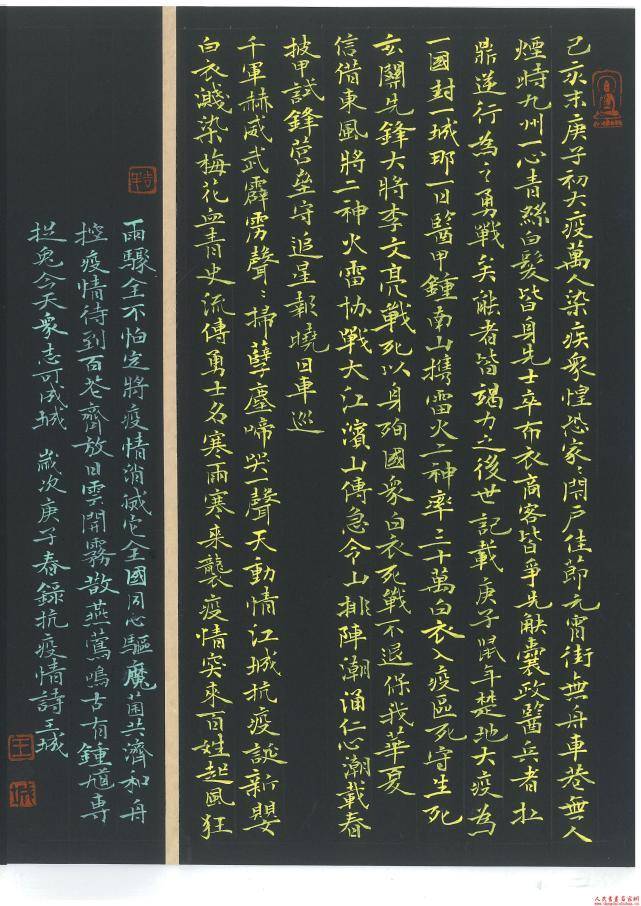 己亥末庚子初大疫萬人染疾衆惶恐家〻閉戶佳節元宵街無舟車巷無人
煙時九州一心青絲白髮皆身先士卒布衣商客皆爭先解囊政醫兵者扛
鼎逆行為之勇戰矣能者皆竭力之後世記載庚子鼠年楚地大疫為
一國封一城那一日醫甲鍾南山携雷火二神率三十萬白衣入疫區死守生死
玄關先鋒大將李文亮戰死以身殉國衆白衣死戰不退保我華夏
信借東風將二神火雷協戰大江濱山傳急令山排陣潮涌仁心潮載春
披甲試鋒營壘守追星報曉日車巡
千軍赫威武霹靂聲〻掃孽塵啼哭一聲天動情江城抗疫誕新嬰
白衣濺染梅花血青史流傳勇士名寒雨寒来襲疫情突來百姓起風狂
雨驟全不怕定將疫情消滅它全國同心驅魔菌共濟和舟
控疫情待到百花齊放日雲開霧散燕鶯鳴古有鍾馗專
捉鬼今天衆志可成城 歲次庚子春錄抗疫情詩王城
王
城
人民書畫名家網